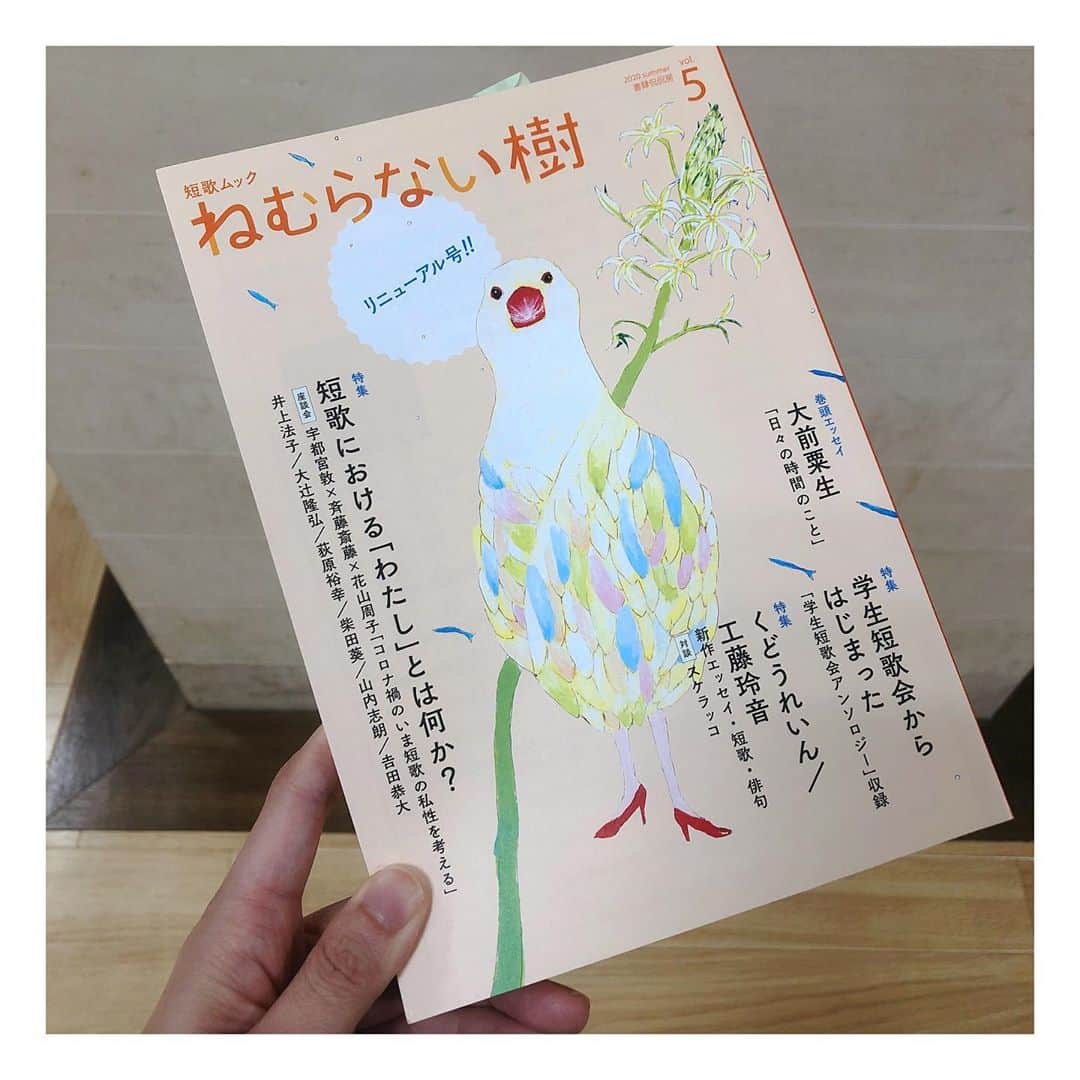 短歌ムック
ねむらない樹
2020 summer
書肆侃侃房
vol.
5
リニューアル号!!
巻頭エッセイ
大前粟生
「日々の時間のこと」
特集
学生短歌会から
はじまった
「学生短歌会アンソロジー」収録
特集
くどうれいん/
工藤玲音
新作エッセイ・短歌・俳句
対談 スケラッコ
特集
短歌における「わたし」とは何か?
座談会 宇都宮敦×斉藤斎藤×花山周子「コロナ禍のいま短歌の私性を考える」
井上法子/大辻隆弘/荻原裕幸/柴田葵/山内志朗/吉田恭大